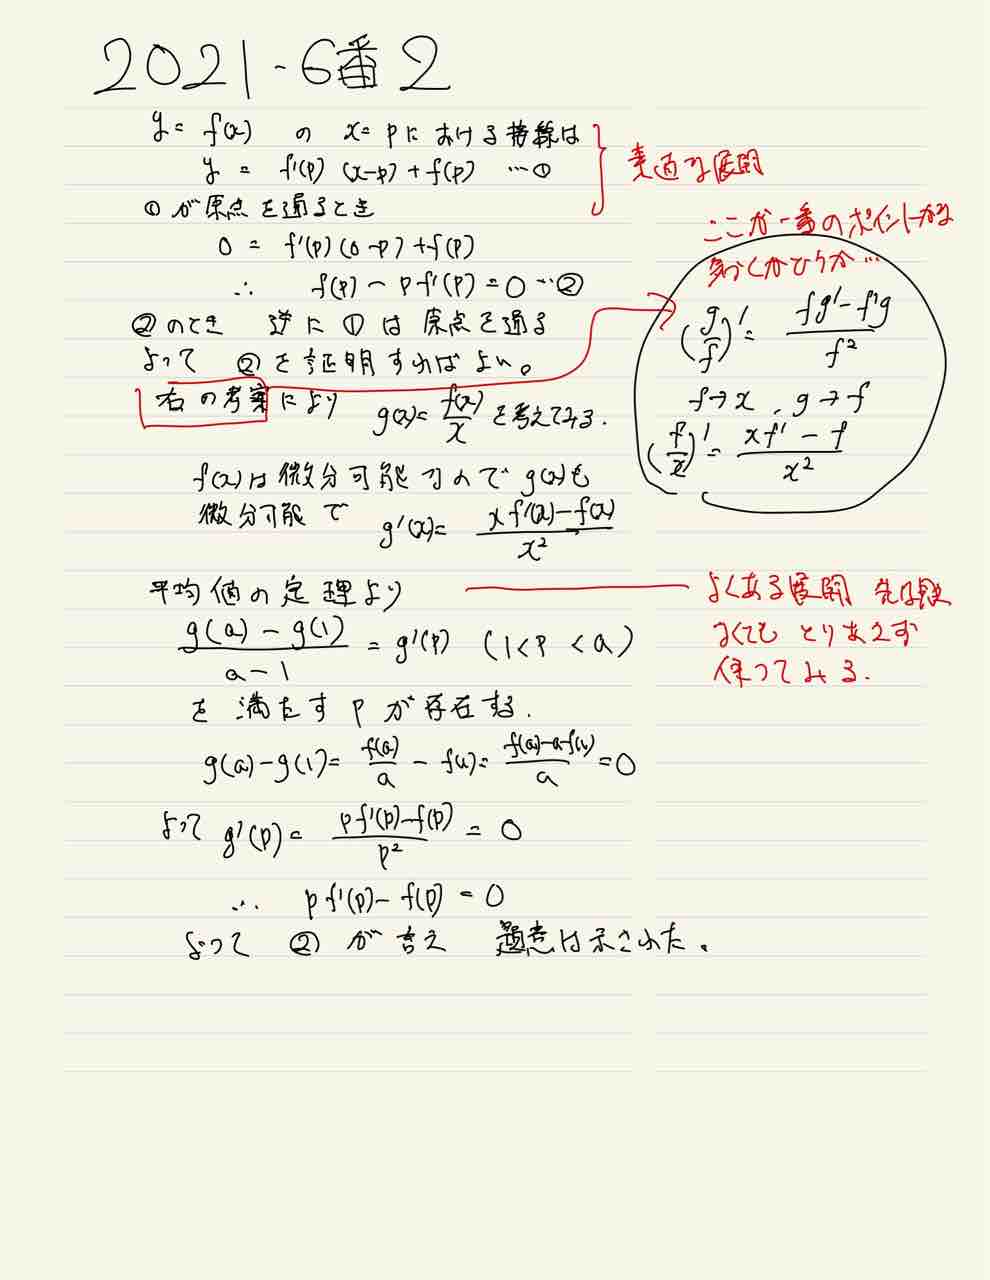 2021-6番2
y = f(x) の x=pにおける接線は
y = f'(p)(x-p)+f(p) …①
素直な展開
①が原点を通るとき
0 = f'(p)(0-p)+f(p)
∴ f(p)-pf'(p)=0…②
②のとき 逆に①は原点を通る
よって ②を証明すればよい。
ここが一番のポイントかな
気づくかどうか…
(g/f)' = (fg'-f'g)/f²
f→x, g→f
(f/x)' = (xf'-f)/x²
右の考察により g(x)= f(x)/x を考えてみる.
f(x)は微分可能なので g(x)も
微分可能で g'(x)= (xf'(x)-f(x))/x²
平均値の定理より
よくある展開 先は見え
なくても とりあえず
使ってみる.
(g(a)-g(1))/(a-1) = g'(p) (1<p<a)
を満たす p が存在する.
g(a)-g(1)= f(a)/a - f(1)= (f(a)-a f(1))/a =0
よって g'(p)= (pf'(p)-f(p))/p² = 0
∴ pf'(p)-f(p) = 0
よって ②が言え 題意は示された。